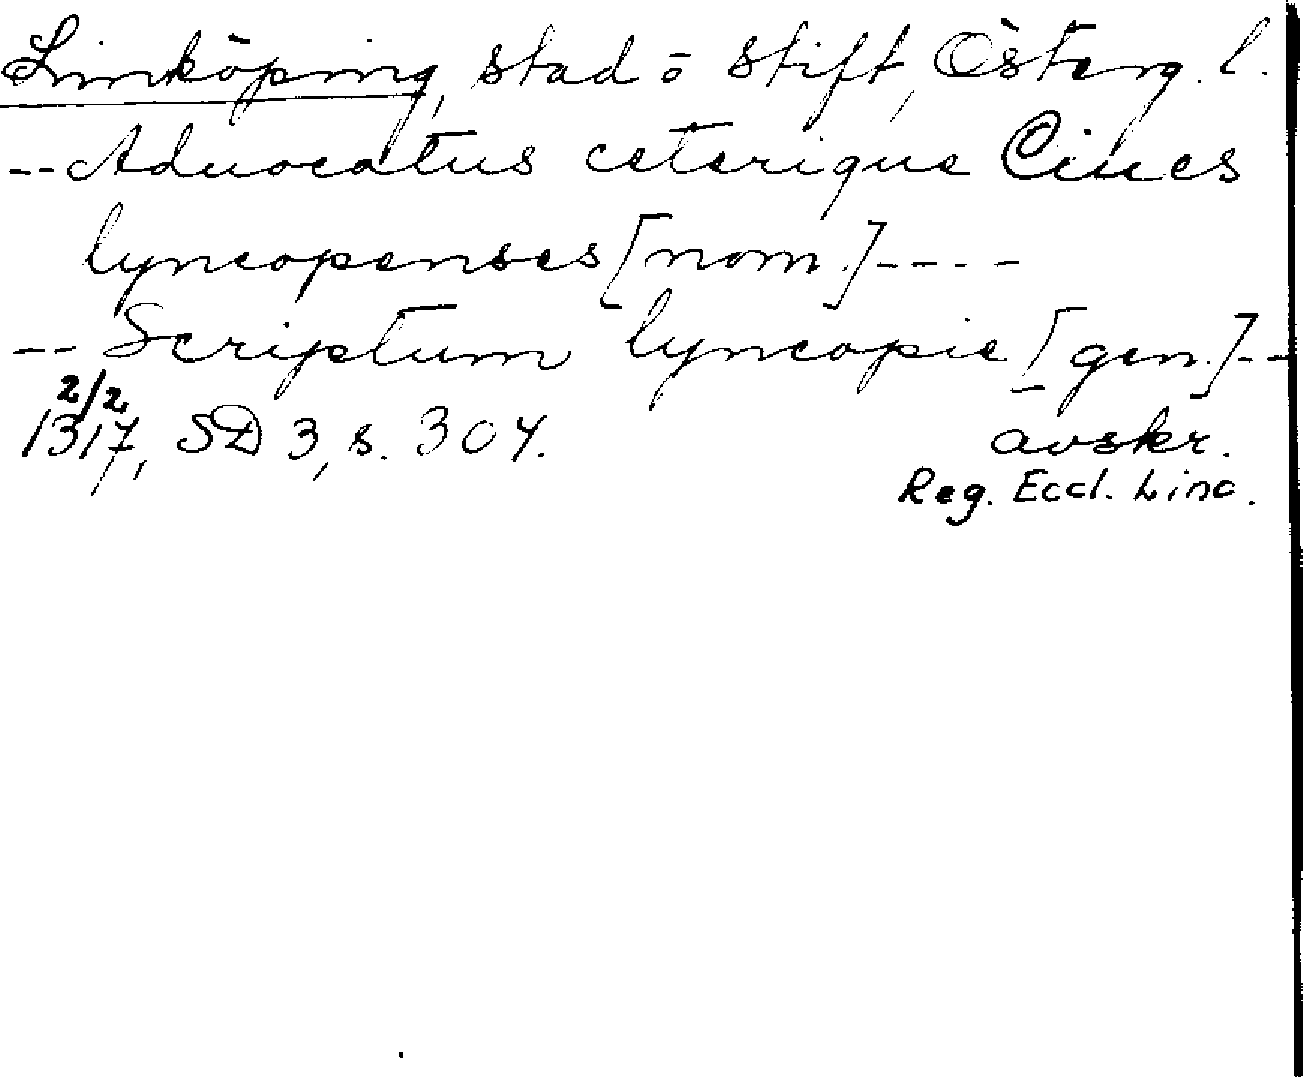 Linköping, stad o stift, Österg. l.
-- Aduocatus ceterique Ciues
lyncopenses [nom.] ----
-- Scriptum lyncopie [gen.] --
2/2
1317, SD 3, s. 304. avskr.
Reg. Eccl. Linc.